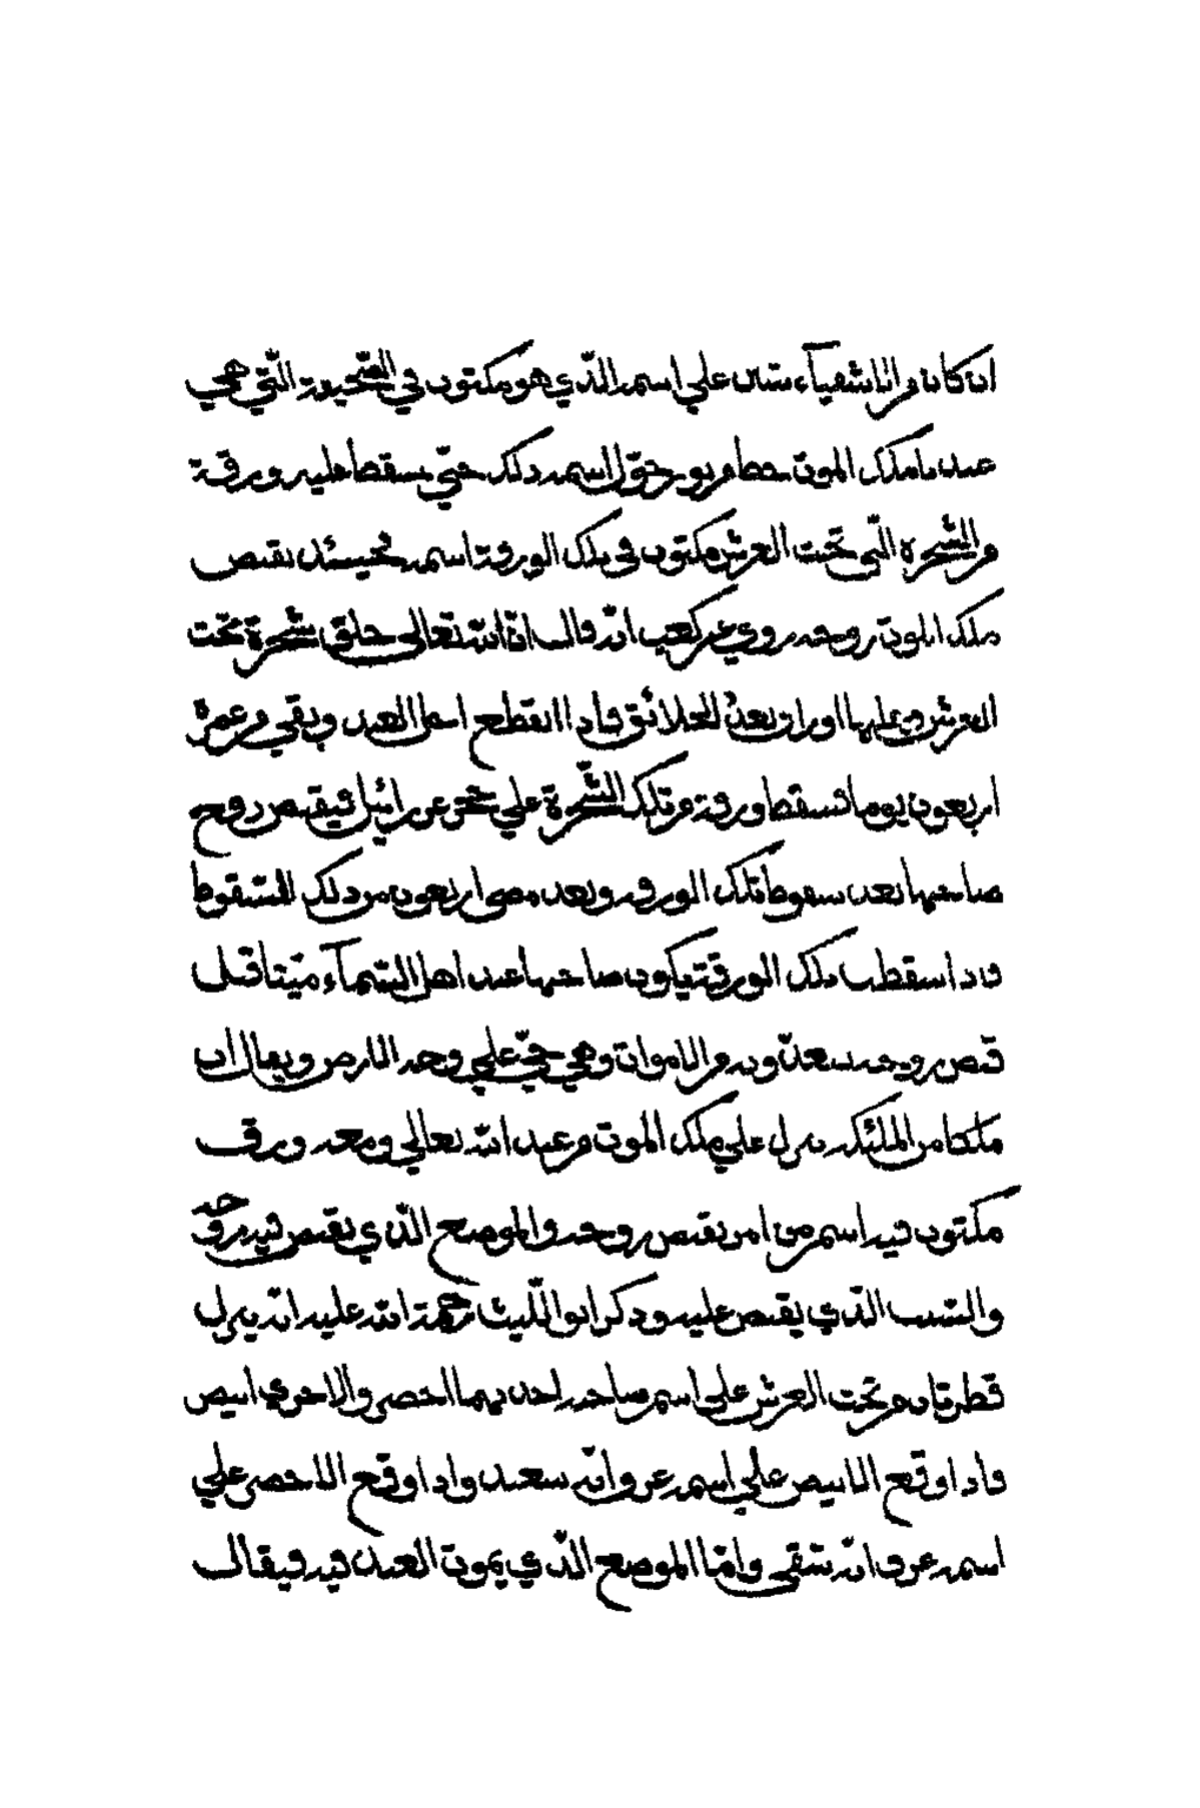 ان كان من الاشقياء على اسمه الذي هو مكتوب في الصحيفة التي هي
عند ملك الموت خط حول اسمه ذلك حتى يسقط عليه ورقة
من الشجرة التي تحت العرش مكتوب في تلك الورقة اسمه فحينئذ يقبض
ملك الموت روحه روي عن كعب انه قال ان الله تعالى خلق شجرة تحت
العرش عليها اوراق بعدد الخلائق فاذا انقطع اجل العبد وبقي من عمره
اربعون يوما فسقط ورقة من تلك الشجرة على حجر عزرائيل فيقبض روح
صاحبها بعد سقوط تلك الورقة وبعد مضي اربعون من ذلك السقوط
فاذا سقطت تلك الورقة يكون صاحبها عند اهل السمآء ميتا قبل
قبض روحه من الاموات وهي حي على وجه الارض ويقال ان
ملكا من الملئكة ينزل على ملك الموت من عند الله تعالى ومعه ورق
مكتوب فيه اسم من امر بقبض روحه والموضع الذي يقبض فيه روحه
والسبب الذي يقبض عليه وذكر ابو الليث رحمة الله عليه انه ينزل
قطرتان من تحت العرش على اسم صاحبه احديهما اخضر والاخرى ابيض
فاذا وقع الابيض على اسمه عرف انه سعيد واذا وقع الاخضر على
اسمه عرف انه شقي واما الموضع الذي يموت العبد فيه فيقال